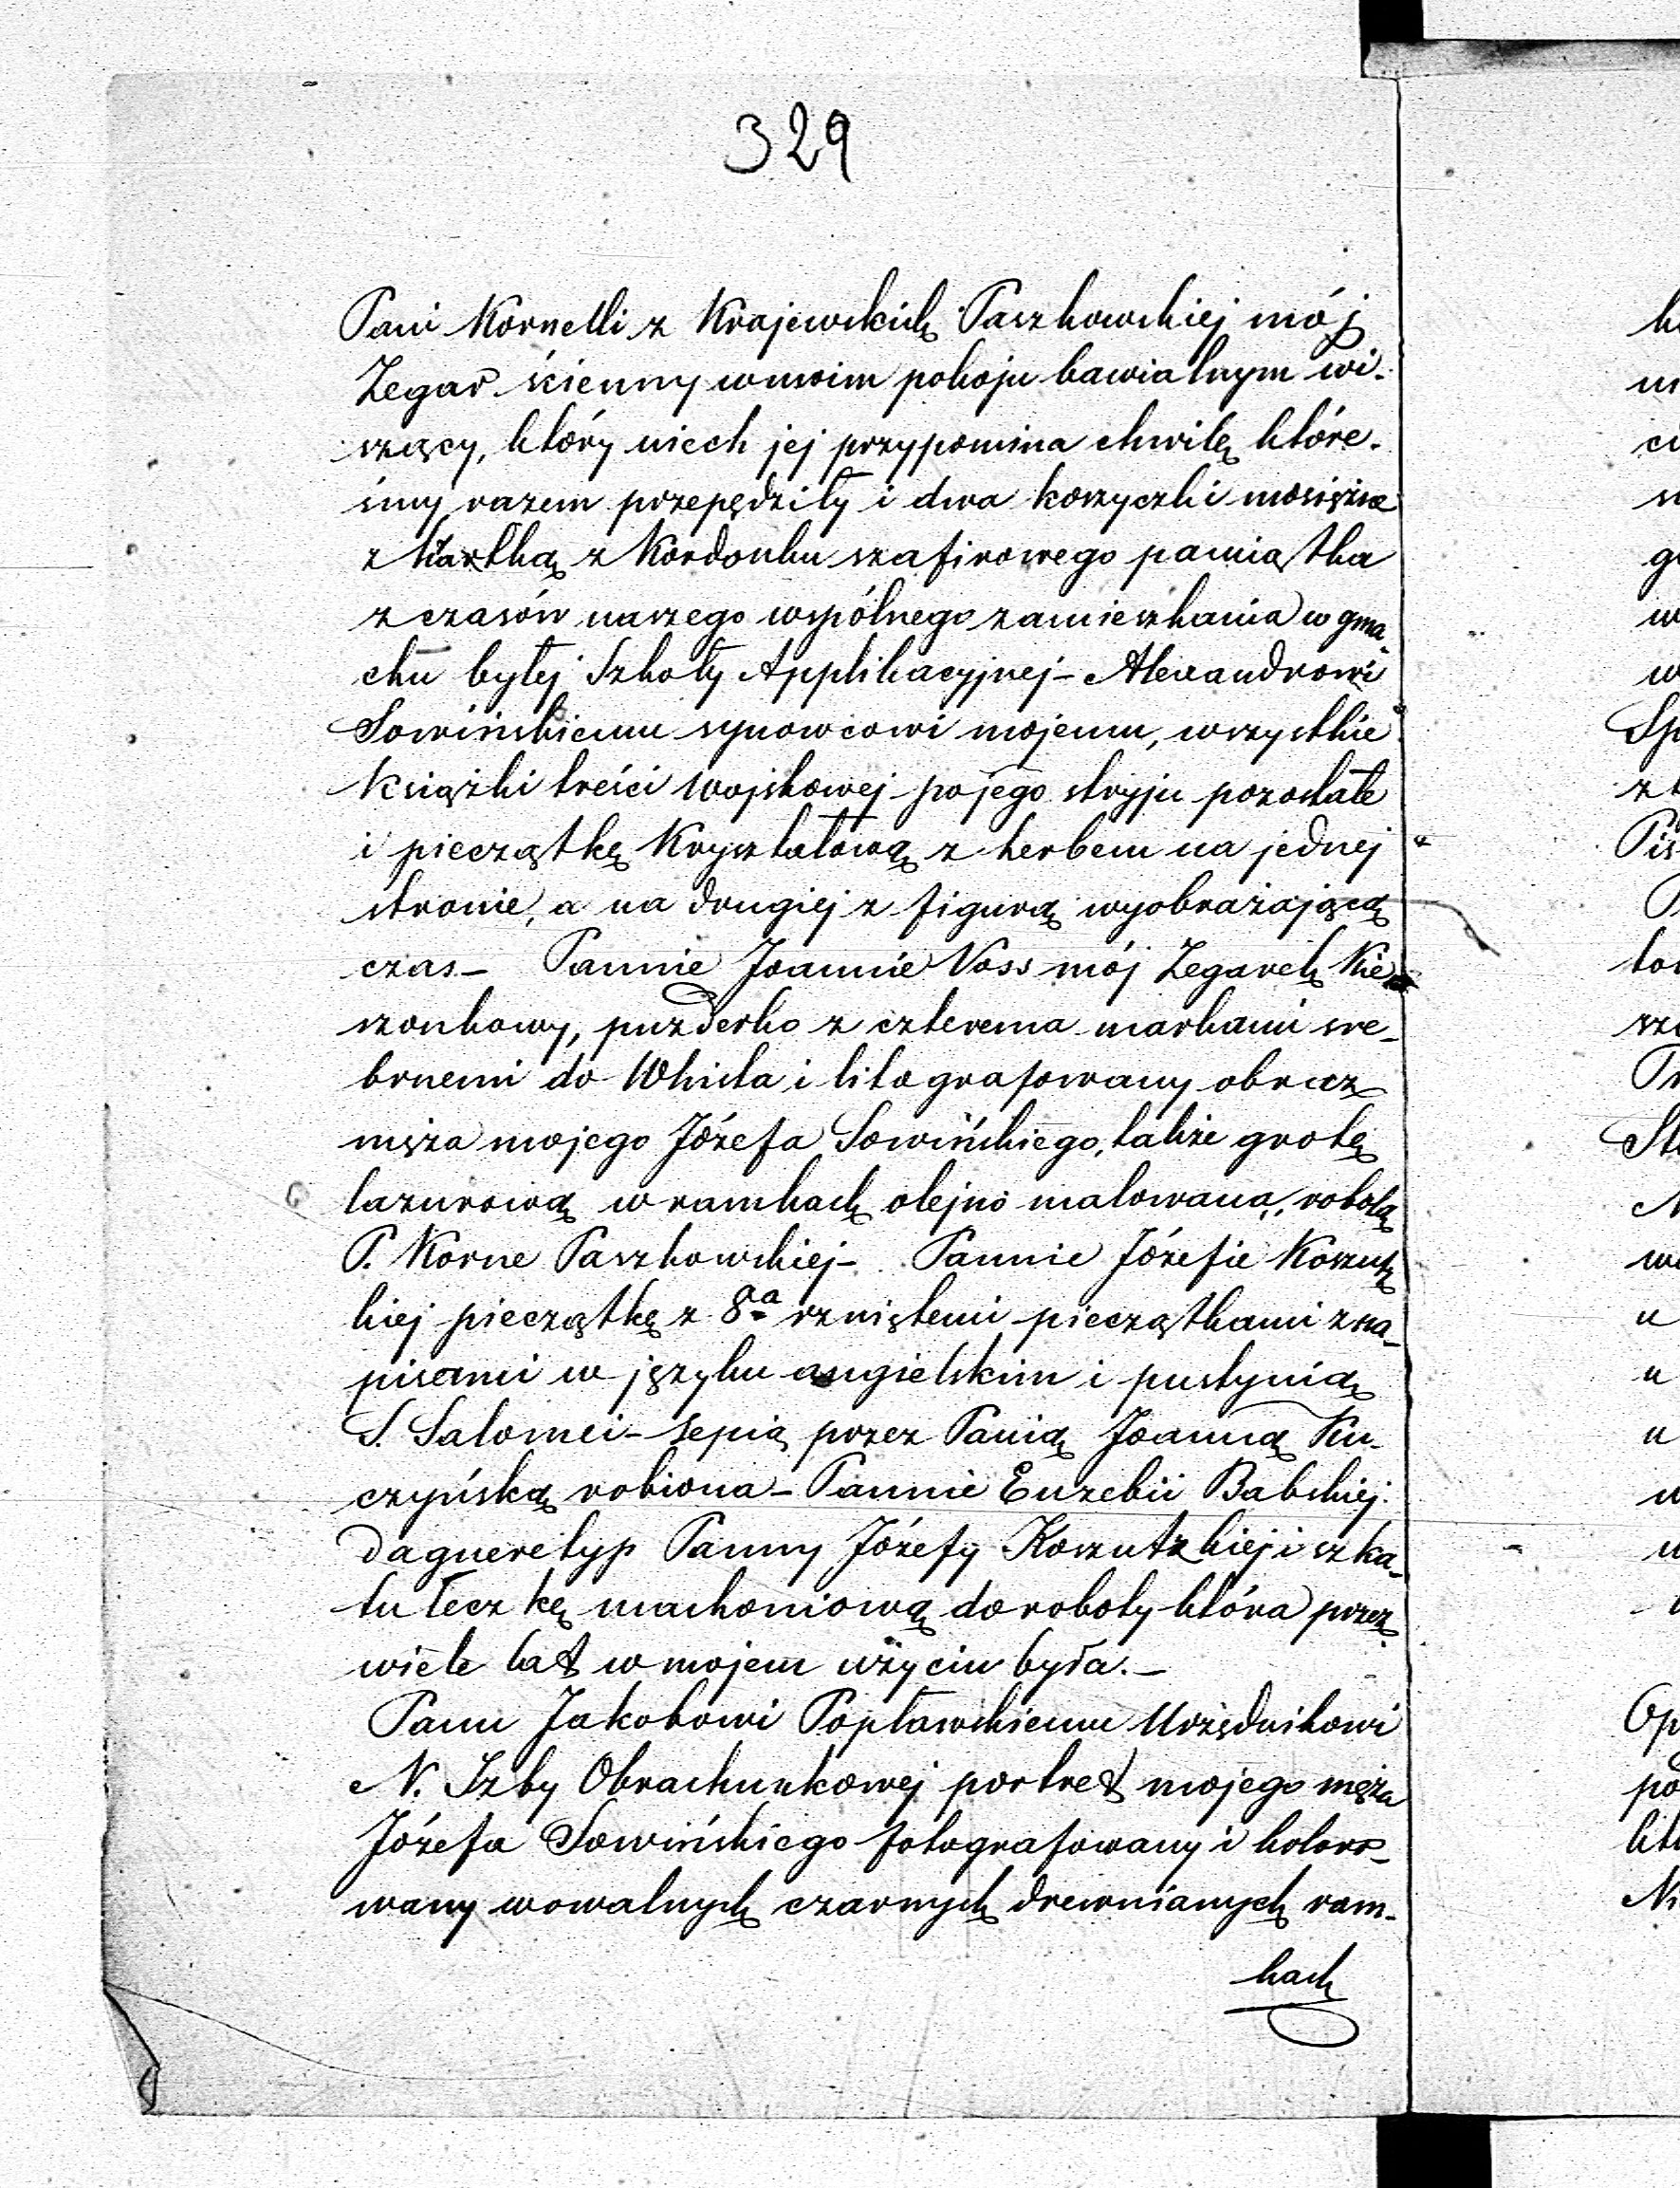 329
Pani Kornelli z Krajewskich Paszkowskiej mój
Zegar ścienny w moim pokoju bawialnym wi-
szący, który niech jej przypomina chwilę które-
śmy razem przepędziły i dwa koszyczki mosiężne
z kartką z Kordonku szafirowego pamiątka
z czasów naszego wspólnego zamieszkania w gma
chu byłej Szkoły Applikacyjnej - Alexandrowi
Sowińskiemu synowcowi mojemu, wszystkie
Książki treści wojskowej po jego stryju pozostałe
i pieczątkę Kryształową z herbem na jednej
stronie, a na drugiej z figurą wyobrażającą
czas - Pannie Joannie Voss mój Zegarek Kie
szonkowy, puzderko z czterema markami sre-
brnemi do Whista i litografowany obraz
męża mojego Józefa Sowińskiego, także grotę
lazurową w ramkach olejno malowaną, robotą
P. Korne Paszkowskiej - Pannie Józefie Koszutz
kiej pieczątkę z 8ª rzniętemi pieczątkami z na-
pisami w języku angielskim i pustynią
S. Salomei - sepią przez Panią Joannę Ku-
czyńską robiona - Pannie Euzebii Babskiej
dagueretyp Panny Józefy Koszutzkiej i szka-
tułeczkę machoniową do roboty która przez
wiele lat w mojem użyciu była. -
Panu Jakobowi Popławskiemu Urzędnikowi
N. Izby Obrachunkowej portret mojego męża
Józefa Sowińskiego fotografowany i koloro-
wany w owalnych czarnych drewnianych ram-
kach